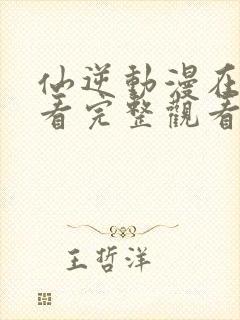 仙逆動漫在
看完整觀看
王哲洋